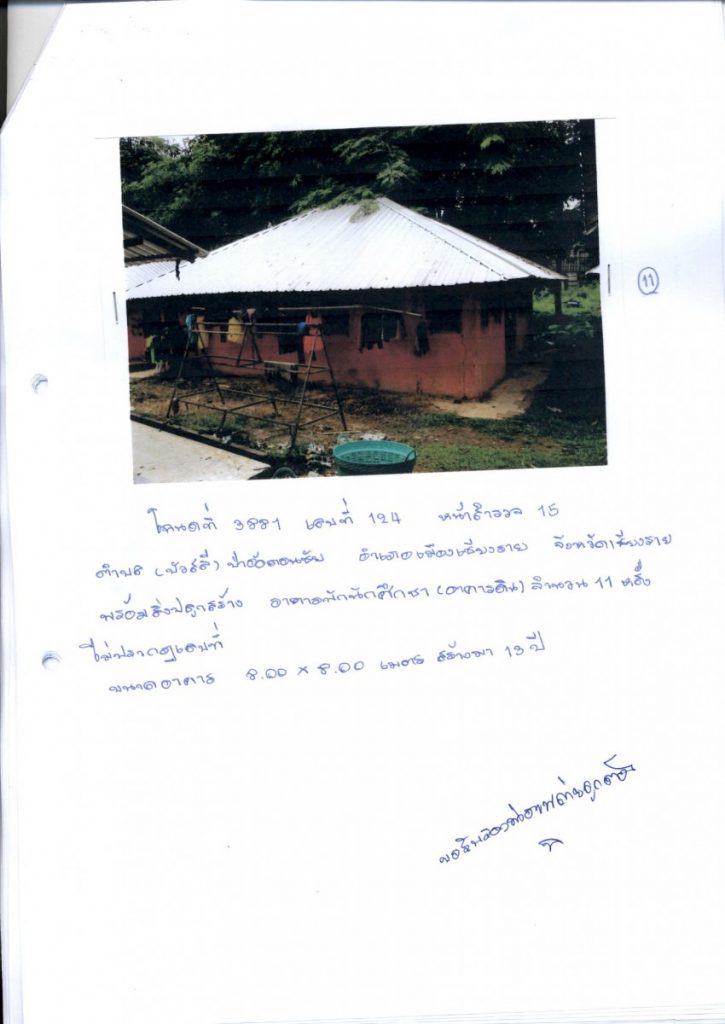 11
โฉนดที่ 3881 เลขที่ 124 หน้าสำรวจ 15
ตำบล (บัวสลี) ป่าอ้อดอนชัย อำเภอเมืองเชียงราย จังหวัดเชียงราย
พร้อมสิ่งปลูกสร้าง อาคารพักนักศึกษา (อาคารดิน) จำนวน 11 หลัง
ไม่ปรากฏเลขที่
ขนาดอาคาร 8.00 × 8.00 เมตร สร้างมา 13 ปี
ขอรับรองว่าภาพถ่ายถูกต้อง